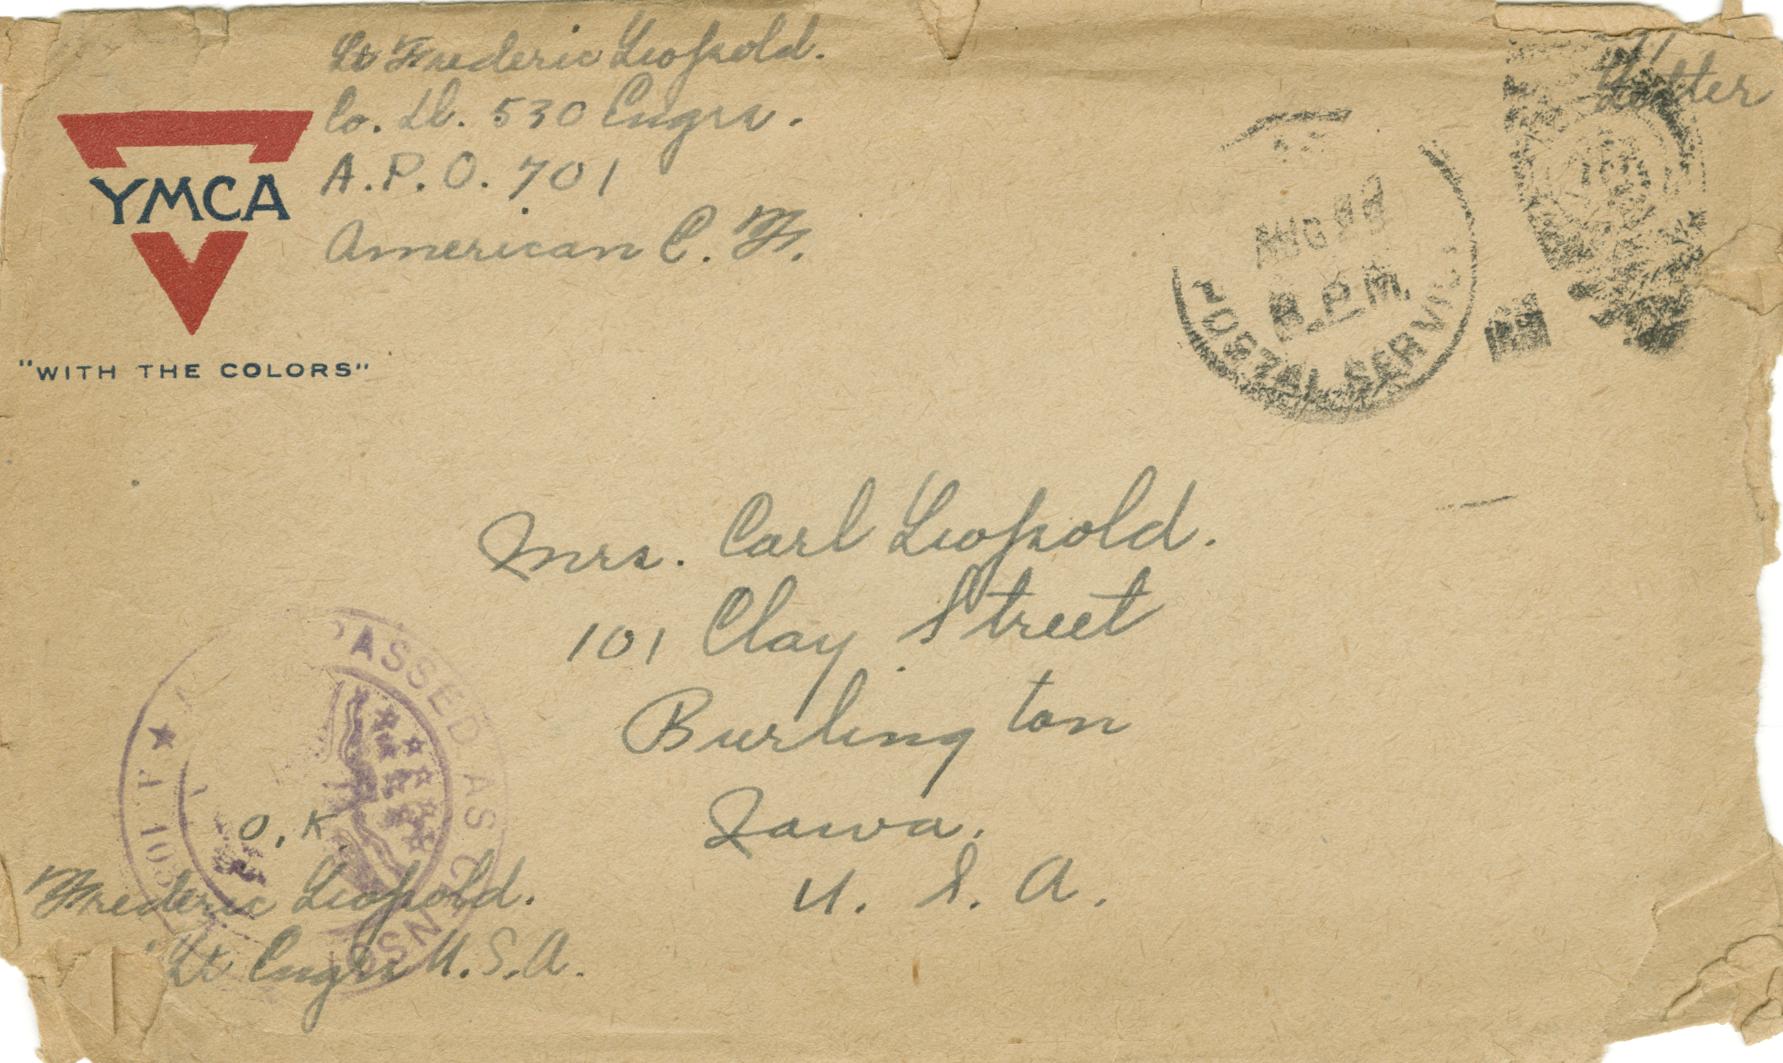 Lt Frederic Leopold.
Co. D. 530 Engrs.
A.P.O. 701
American E. F.
YMCA
"WITH THE COLORS"
AUG
P.M.
POSTAL SERVICE
Mrs. Carl Leopold.
101 Clay Street
Burlington
Iowa.
U. S. A.
PASSED AS CENSORED
O.K.
Frederic Leopold.
Lt Engrs U.S.A.